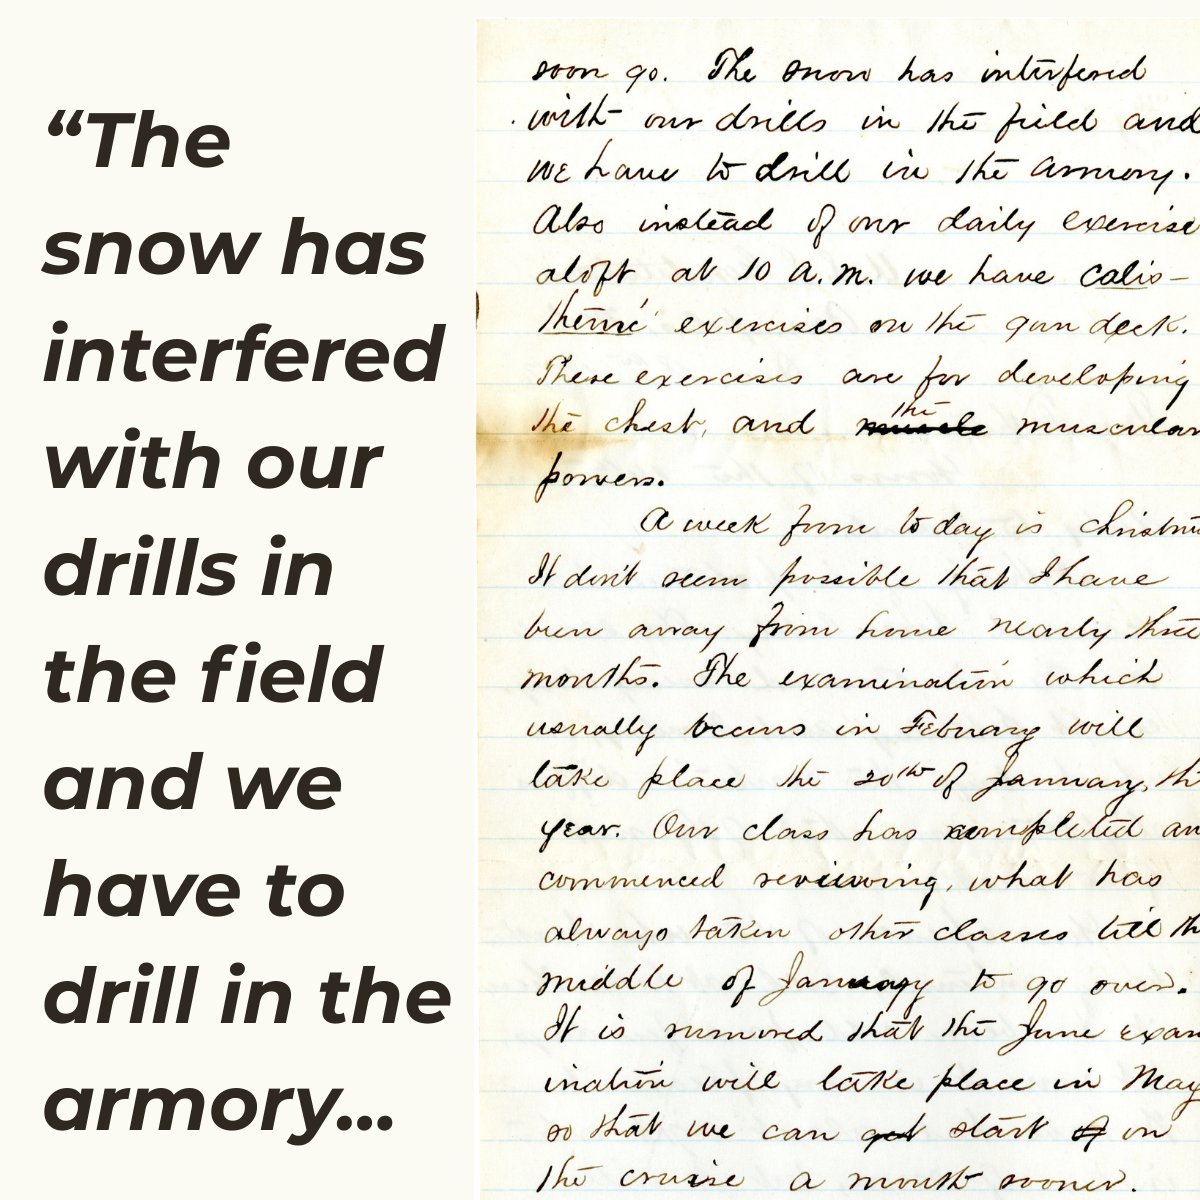 “The
snow has
interfered
with our
drills in
the field
and we
have to
drill in the
armory...
soon go. The snow has interfered
with our drills in the field and
we have to drill in the armory.
Also instead of our daily exercise
aloft at 10 A.M. we have calis-
thenic exercises on the gun deck.
These exercises are for developing
the chest, and muscle the muscular
powers.
A week from to day is Christm
It don't seem possible that I have
been away from home nearly three
months. The examination which
usually occurs in Febuary will
take place the 20th of January, th
year. Our class has completed an
commenced reviewing, what has
always taken other classes till th
middle of January to go over.
It is rumored that the June exam
ination will take place in May
so that we can get start of on
the cruise a month sooner.